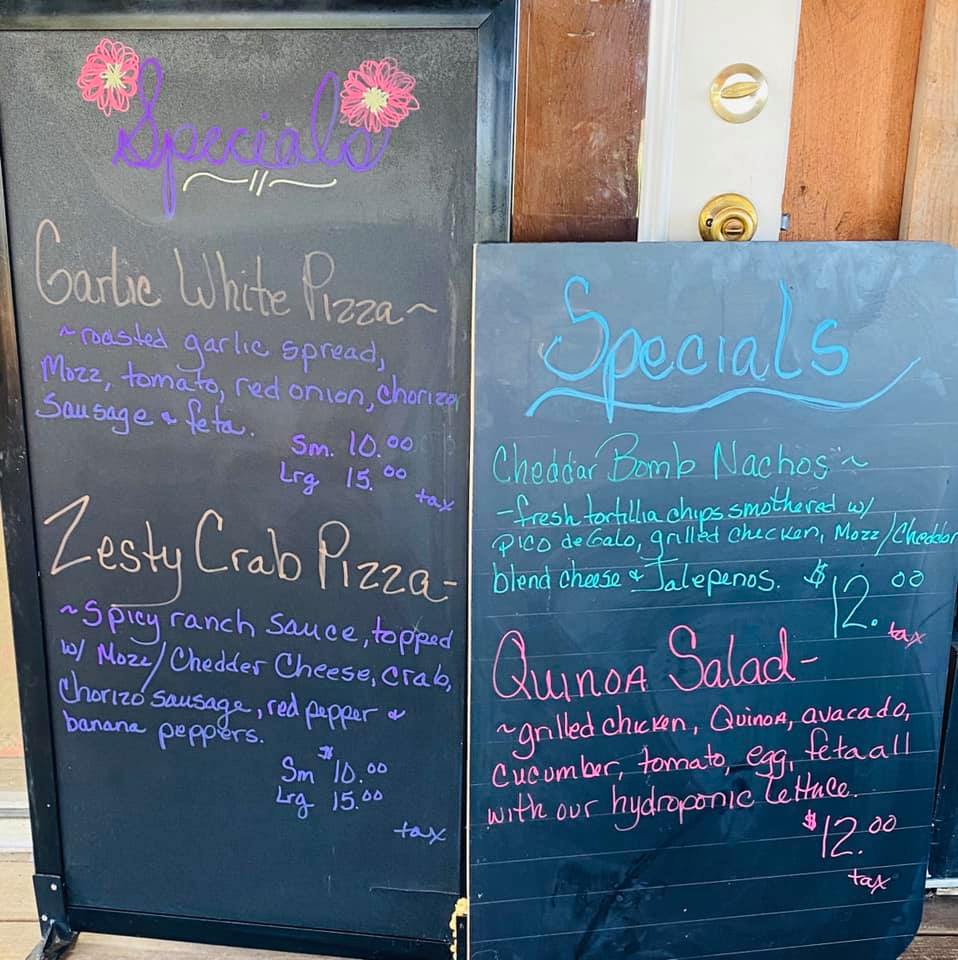 Specials
Garlic White Pizza~
~roasted garlic spread,
Mozz, tomato, red onion, chorizo
Sausage & feta.
Sm. 10.00
Lrg 15.00
tax
Zesty Crab Pizza-
~Spicy ranch sauce, topped
w/ Mozz/Chedder Cheese, crab,
Chorizo sausage, red pepper &
banana peppers.
Sm $10.00
Lrg 15.00
tax
Specials
Cheddar Bomb Nachos~
-fresh tortillia chips smothered w/
Pico de Galo, grilled chicken, Mozz/Cheddar
blend cheese & Jalepenos. $12.00
tax
Quinoa Salad-
~grilled chicken, Quinoa, avacado,
cucumber, tomato, egg, feta all
with our hydroponic lettuce.
$12.00
tax